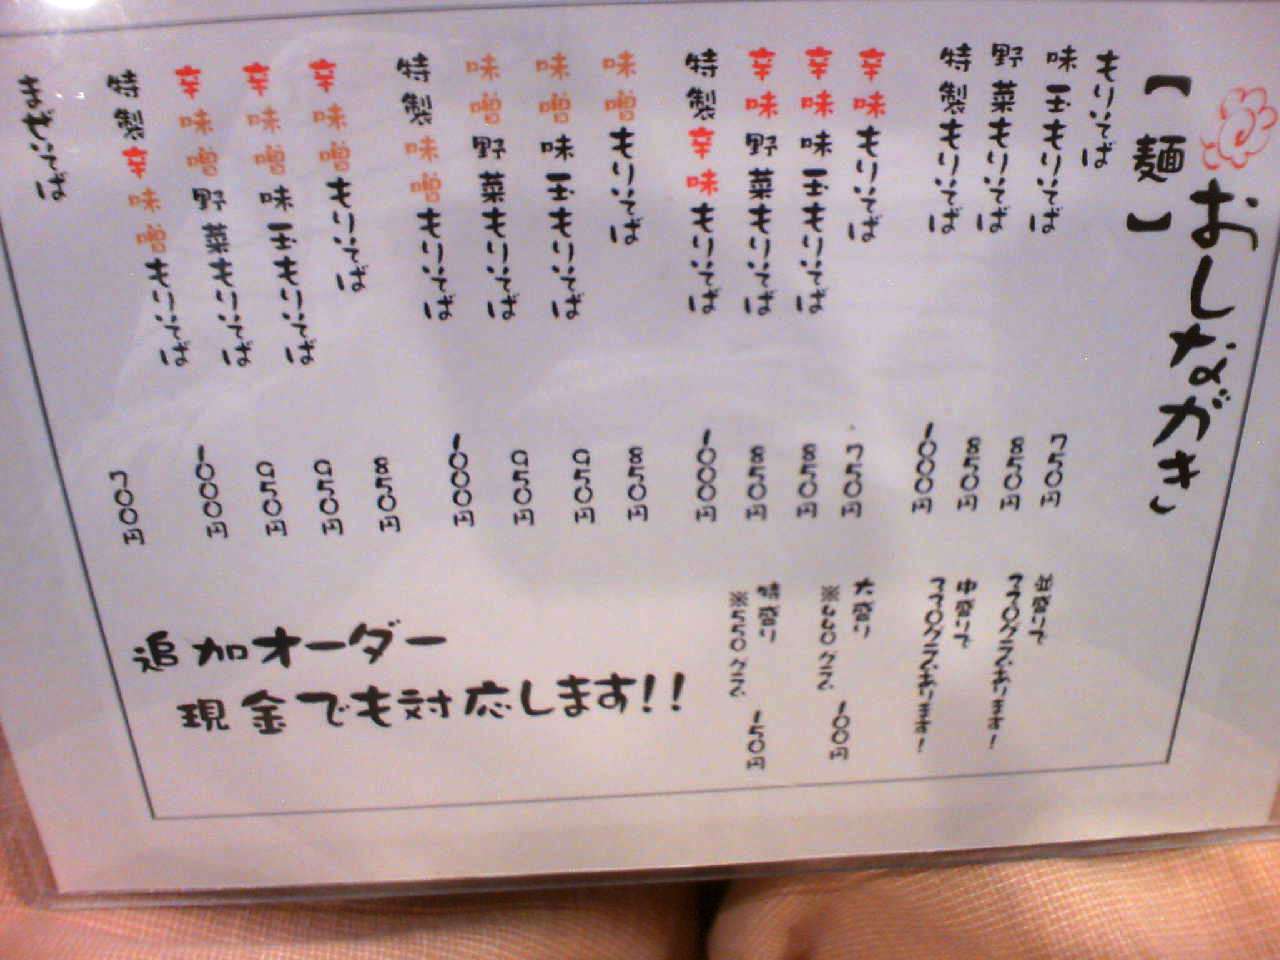 おしながき
【麺】
もりそば 750円
味玉もりそば 850円
野菜もりそば 850円
特製もりそば 1000円
辛味もりそば 750円
辛味味玉もりそば 850円
辛味野菜もりそば 850円
特製辛味もりそば 1000円
味噌もりそば 850円
味噌味玉もりそば 950円
味噌野菜もりそば 950円
特製味噌もりそば 1000円
辛味噌もりそば 850円
辛味噌味玉もりそば 950円
辛味噌野菜もりそば 950円
特製辛味噌もりそば 1000円
まぜそば 700円
並盛りで
グラムあります!
中盛りで
グラムあります!
大盛り 100円
※グラム
特盛り 150円
※550グラム
追加オーダー
現金でも対応します!!